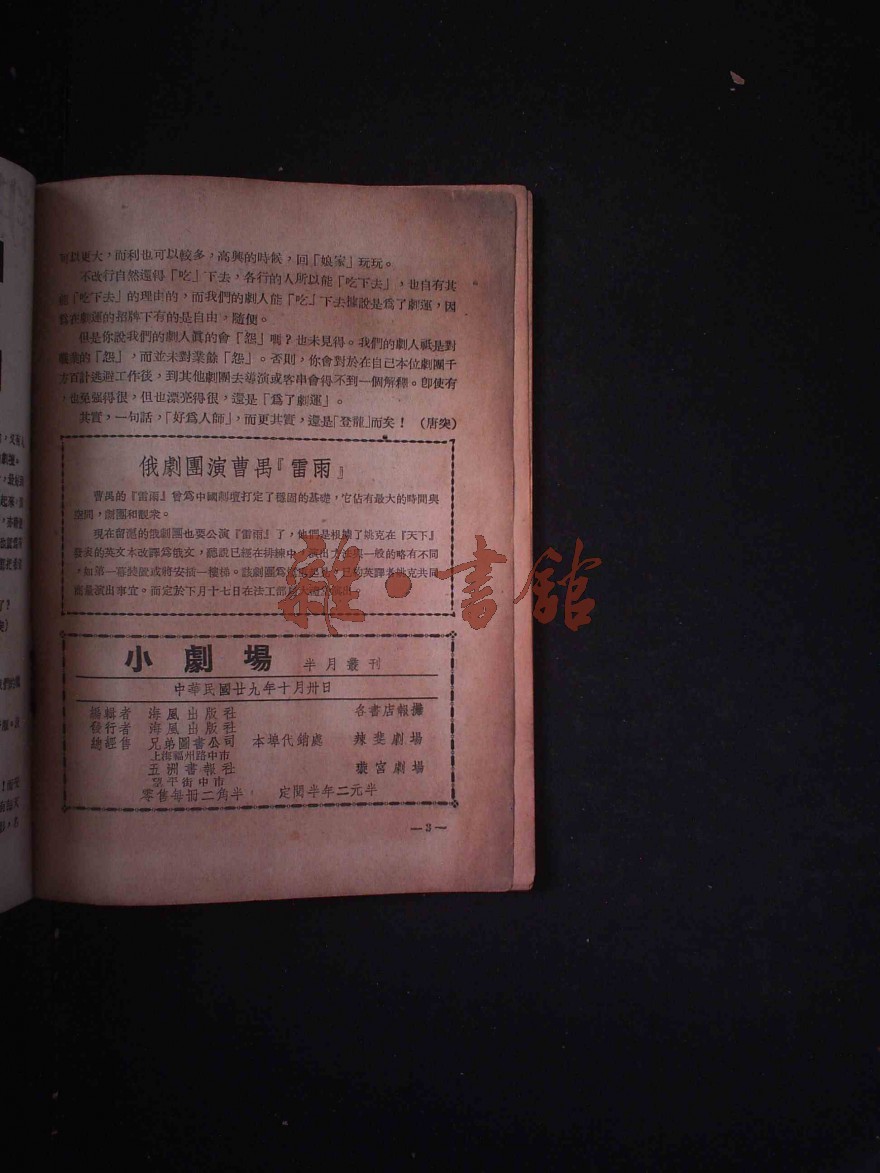 可以更大,而利也可以較多,高興的時候,回「娘家」玩玩。
不改行自然還得「吃」下去,各行的人所以能「吃下去」,也自有其
「吃下去」的理由的,而我們的劇人能「吃」下去據說是爲了劇運,因
爲在劇運的招牌下有的是自由,隨便。
但是你說我們的劇人眞的會「怨」嗎?也未見得。我們的劇人祗是對
職業的「怨」,而並未對業餘「怨」。否則,你會對於在自己本位劇團千
方百計逃避工作後,到其他劇團去導演或客串會得不到一個解釋。卽使有
,也勉强得很,但也漂亮得很,還是「爲了劇運」。
其實,一句話,「好爲人師」,而更其實,還是「登龍」而矣! (唐突)
俄劇團演曹禺『雷雨』
曹禺的『雷雨』曾爲中國劇壇打定了穩固的基礎,它佔有最大的時間與
空間,劇團和觀衆。
現在留滬的俄劇團也要公演『雷雨』了,他們是根據了姚克在『天下』
發表的英文本改譯爲俄文,聽說已經在排練中,演出方法與一般的略有不同
,如第一幕裝置或將安插一樓梯。該劇團爲 英譯者姚克共同
商量演出事宜。而定於下月十七日在法工部局大禮堂演出
小劇場 半月叢刊
中華民國廿九年十月卅日
編輯者 海風出版社 各書店報攤
發行者 海風出版社
總經售 兄弟圖書公司 本埠代銷處 辣斐劇場
上海福州路中市
五洲書報社 璇宮劇場
望平街中市
零售每冊二角半 定閱半年二元半
—3—
雜·書館